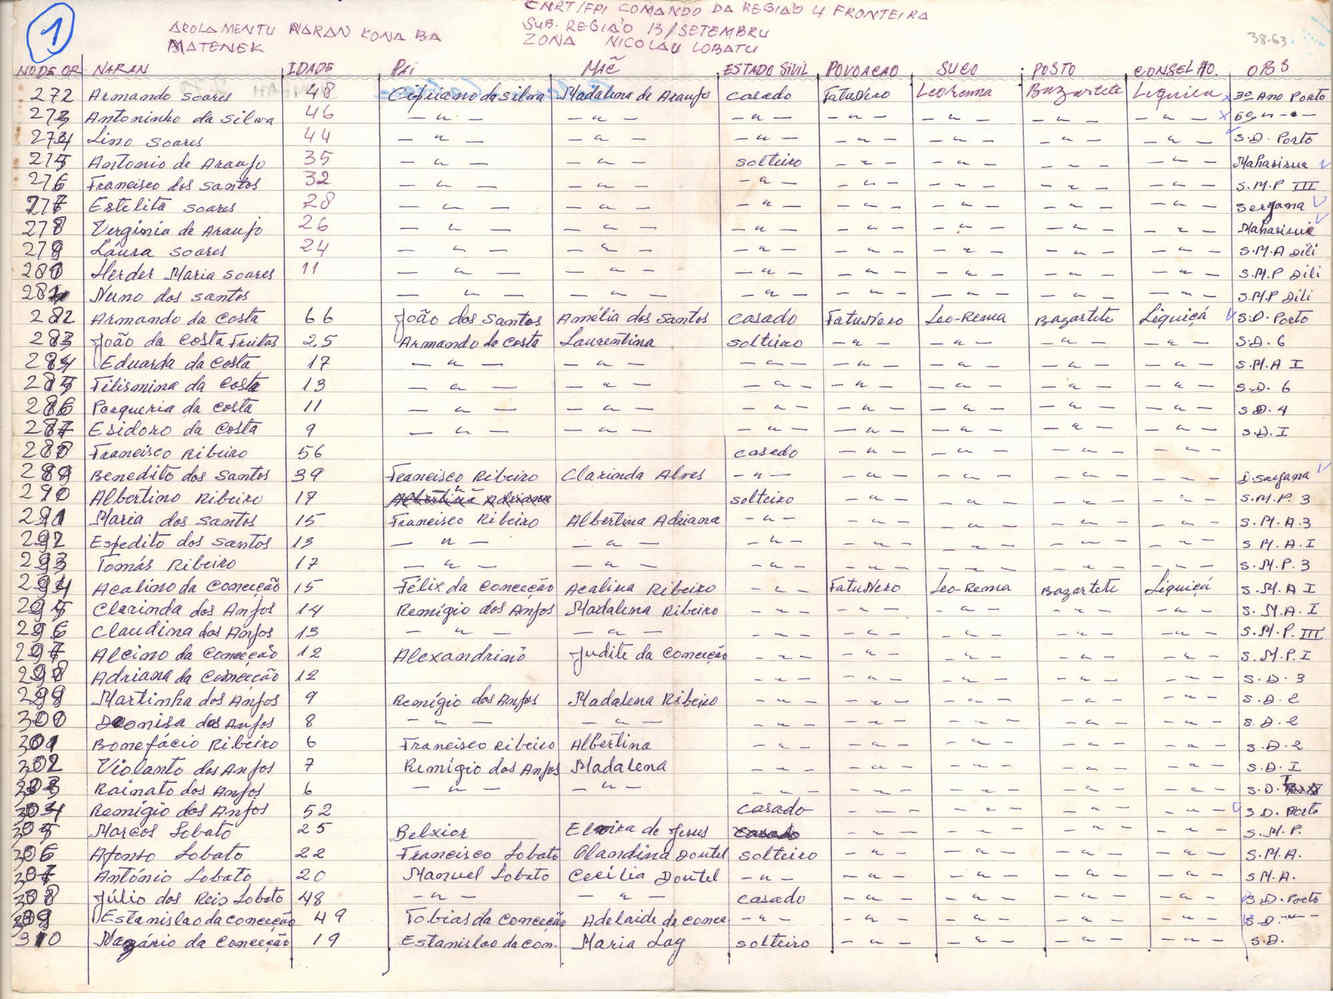 1
CNRT/FPI COMANDO DA REGIÃO 4 FRONTEIRA
AROLAMENTU NARAN KONA BA SUB. REGIÃO 13/SETEMBRU
MATENEK ZONA NICOLAU LOBATU
38-63
NO DE OR NARAN IDADE PAI MÃE ESTADO SIVIL POVOACAO SUCO POSTO CONSELHO OBS
272 Armando Soares 48 Cipriano da Silva Madalena de Araujo casado FatuNeso Leorema Bazartete Liquica 3º Ano Porto
273 Antoninho da Silva 46 — " — — " — — " — — " — — " — — " — — " —
274 Lino Soares 44 — " — — " — — " — — " — — " — — " — — " — S.D. Porto
275 Antonio de Araujo 35 — " — — " — solteiro — " — — " — — " — — " —
276 Francisco dos Santos 32 — " — — " — — " — — " — — " — — " — — " — S.M.P III
277 Estelita Soares 28 — " — — " — — " — — " — — " — — " — — " —
278 Verginia de Araujo 26 — " — — " — — " — — " — — " — — " — — " —
279 Laura Soares 24 — " — — " — — " — — " — — " — — " — — " — S.M.A Dili
280 Herder Maria Soares 11 — " — — " — — " — — " — — " — — " — — " — S.M.P Dili
281 Nuno dos Santos — " — — " — — " — — " — — " — — " — — " — S.M.P Dili
282 Armando da Costa 66 João dos Santos Amélia dos Santos casado FatuNeso Leo-Rema Bazartete Liquiçá S.D. Porto
283 João da Costa Freitas 25 Armando da Costa Laurentina solteiro — " — — " — — " — — " — S.D. 6
284 Eduarda da Costa 17 — " — — " — — " — — " — — " — — " — — " — S.M.A I
285 Filismina da Costa 13 — " — — " — — " — — " — — " — — " — — " — S.D. 6
286 Pasqueria da Costa 11 — " — — " — — " — — " — — " — — " — — " — S.D. 4
287 Esidoro da Costa 9 — " — — " — — " — — " — — " — — " — — " — S.D. I
288 Francisco Ribeiro 56 casado — " — — " — — " — — " —
289 Benedito dos Santos 39 Francisco Ribeiro Clarinda Alves — " — — " — — " — — " — — " —
290 Albertino Ribeiro 17 — " — solteiro — " — — " — — " — — " — S.M.P. 3
291 Maria dos Santos 15 Francisco Ribeiro Albertina Adriana — " — — " — — " — — " — — " — S.M.A. 3
292 Espedito dos Santos 13 — " — — " — — " — — " — — " — — " — — " — S.M.A. I
293 Tomás Ribeiro 17 — " — — " — — " — — " — — " — — " — — " — S.M.P. 3
294 Acalino da Conceição 15 Félix da Conceição Acalina Ribeiro — " — FatuNeso Leo-Rema Bazartete Liquiçá S.M.A I
295 Clarinda dos Anjos 14 Remigio dos Anjos Madalena Ribeiro — " — — " — — " — — " — — " — S.M.A. I
296 Claudina dos Anjos 13 — " — — " — — " — — " — — " — — " — — " — S.M.P. III
297 Alcino da Conceição 12 Alexandrino Judite da Conceição — " — — " — — " — — " — — " — S.M.P. I
298 Adriana da Conceição 12 — " — — " — — " — — " — — " — S.D. 3
299 Martinha dos Anjos 9 Remigio dos Anjos Madalena Ribeiro — " — — " — — " — — " — — " — S.D. 2
300 Deonisa dos Anjos 8 — " — — " — — " — — " — — " — — " — — " — S.D. 2
301 Bonefácio Ribeiro 6 Francisco Ribeiro Albertina — " — — " — — " — — " — — " — S.D. 2
302 Violanto dos Anjos 7 Remigio dos Anjos Madalena — " — — " — — " — — " — — " — S.D. I
303 Rainato dos Anjos 6 — " — — " — — " — — " — — " — — " — — " — S.D.
304 Remigio dos Anjos 52 casado — " — — " — — " — — " — S.D. Porto
305 Marcos Lobato 25 Belxior Elvira de Jesus casado — " — — " — — " — — " — S.M.P.
306 Afonso Lobato 22 Francisco Lobato Olandina Doutel solteiro — " — — " — — " — — " — S.M.A.
307 António Lobato 20 Manuel Lobato Cecilia Doutel — " — — " — — " — — " — — " — S.M.A.
308 Júlio dos Reis Lobato 48 — " — — " — casado — " — — " — — " — — " — S.D. Porto
309 Estanislao da conceição 49 Tobias da Conceicão Adelaide da conce — " — — " — — " — — " — — " — S.D. — " —
310 Nazário da Conceição 19 Estanislao da con. Maria Lay solteiro — " — — " — — " — — " — S.D.